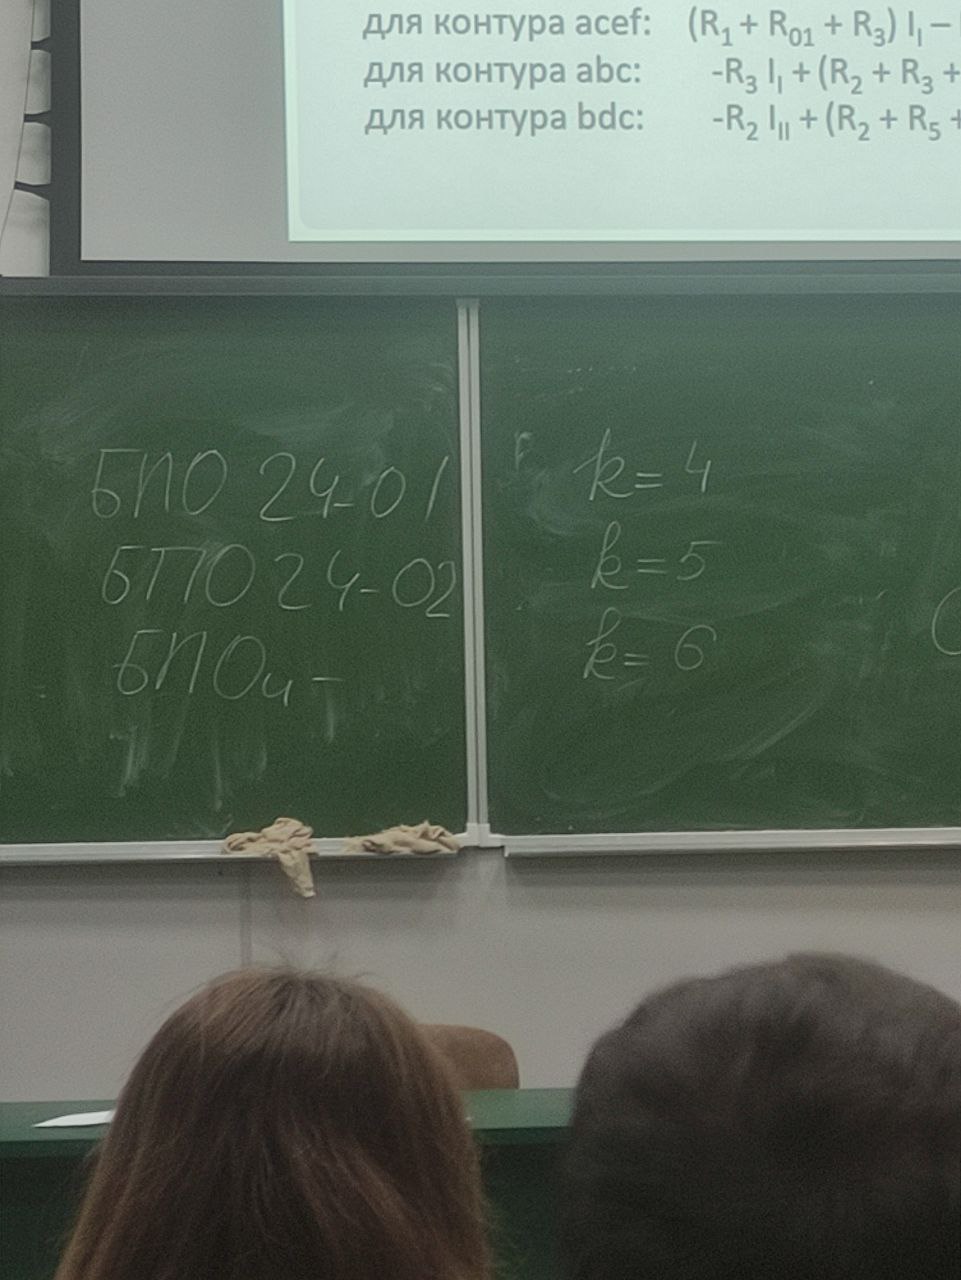 для контура acef: (R₁ + R₀₁ + R₃) Iᵢ –
для контура abc: -R₃ Iᵢ + (R₂ + R₃ +
для контура bdc: -R₂ Iᵢᵢ + (R₂ + R₅ +
БПО 24-01 k = 4
БПО 24-02 k = 5
БПОи - k = 6